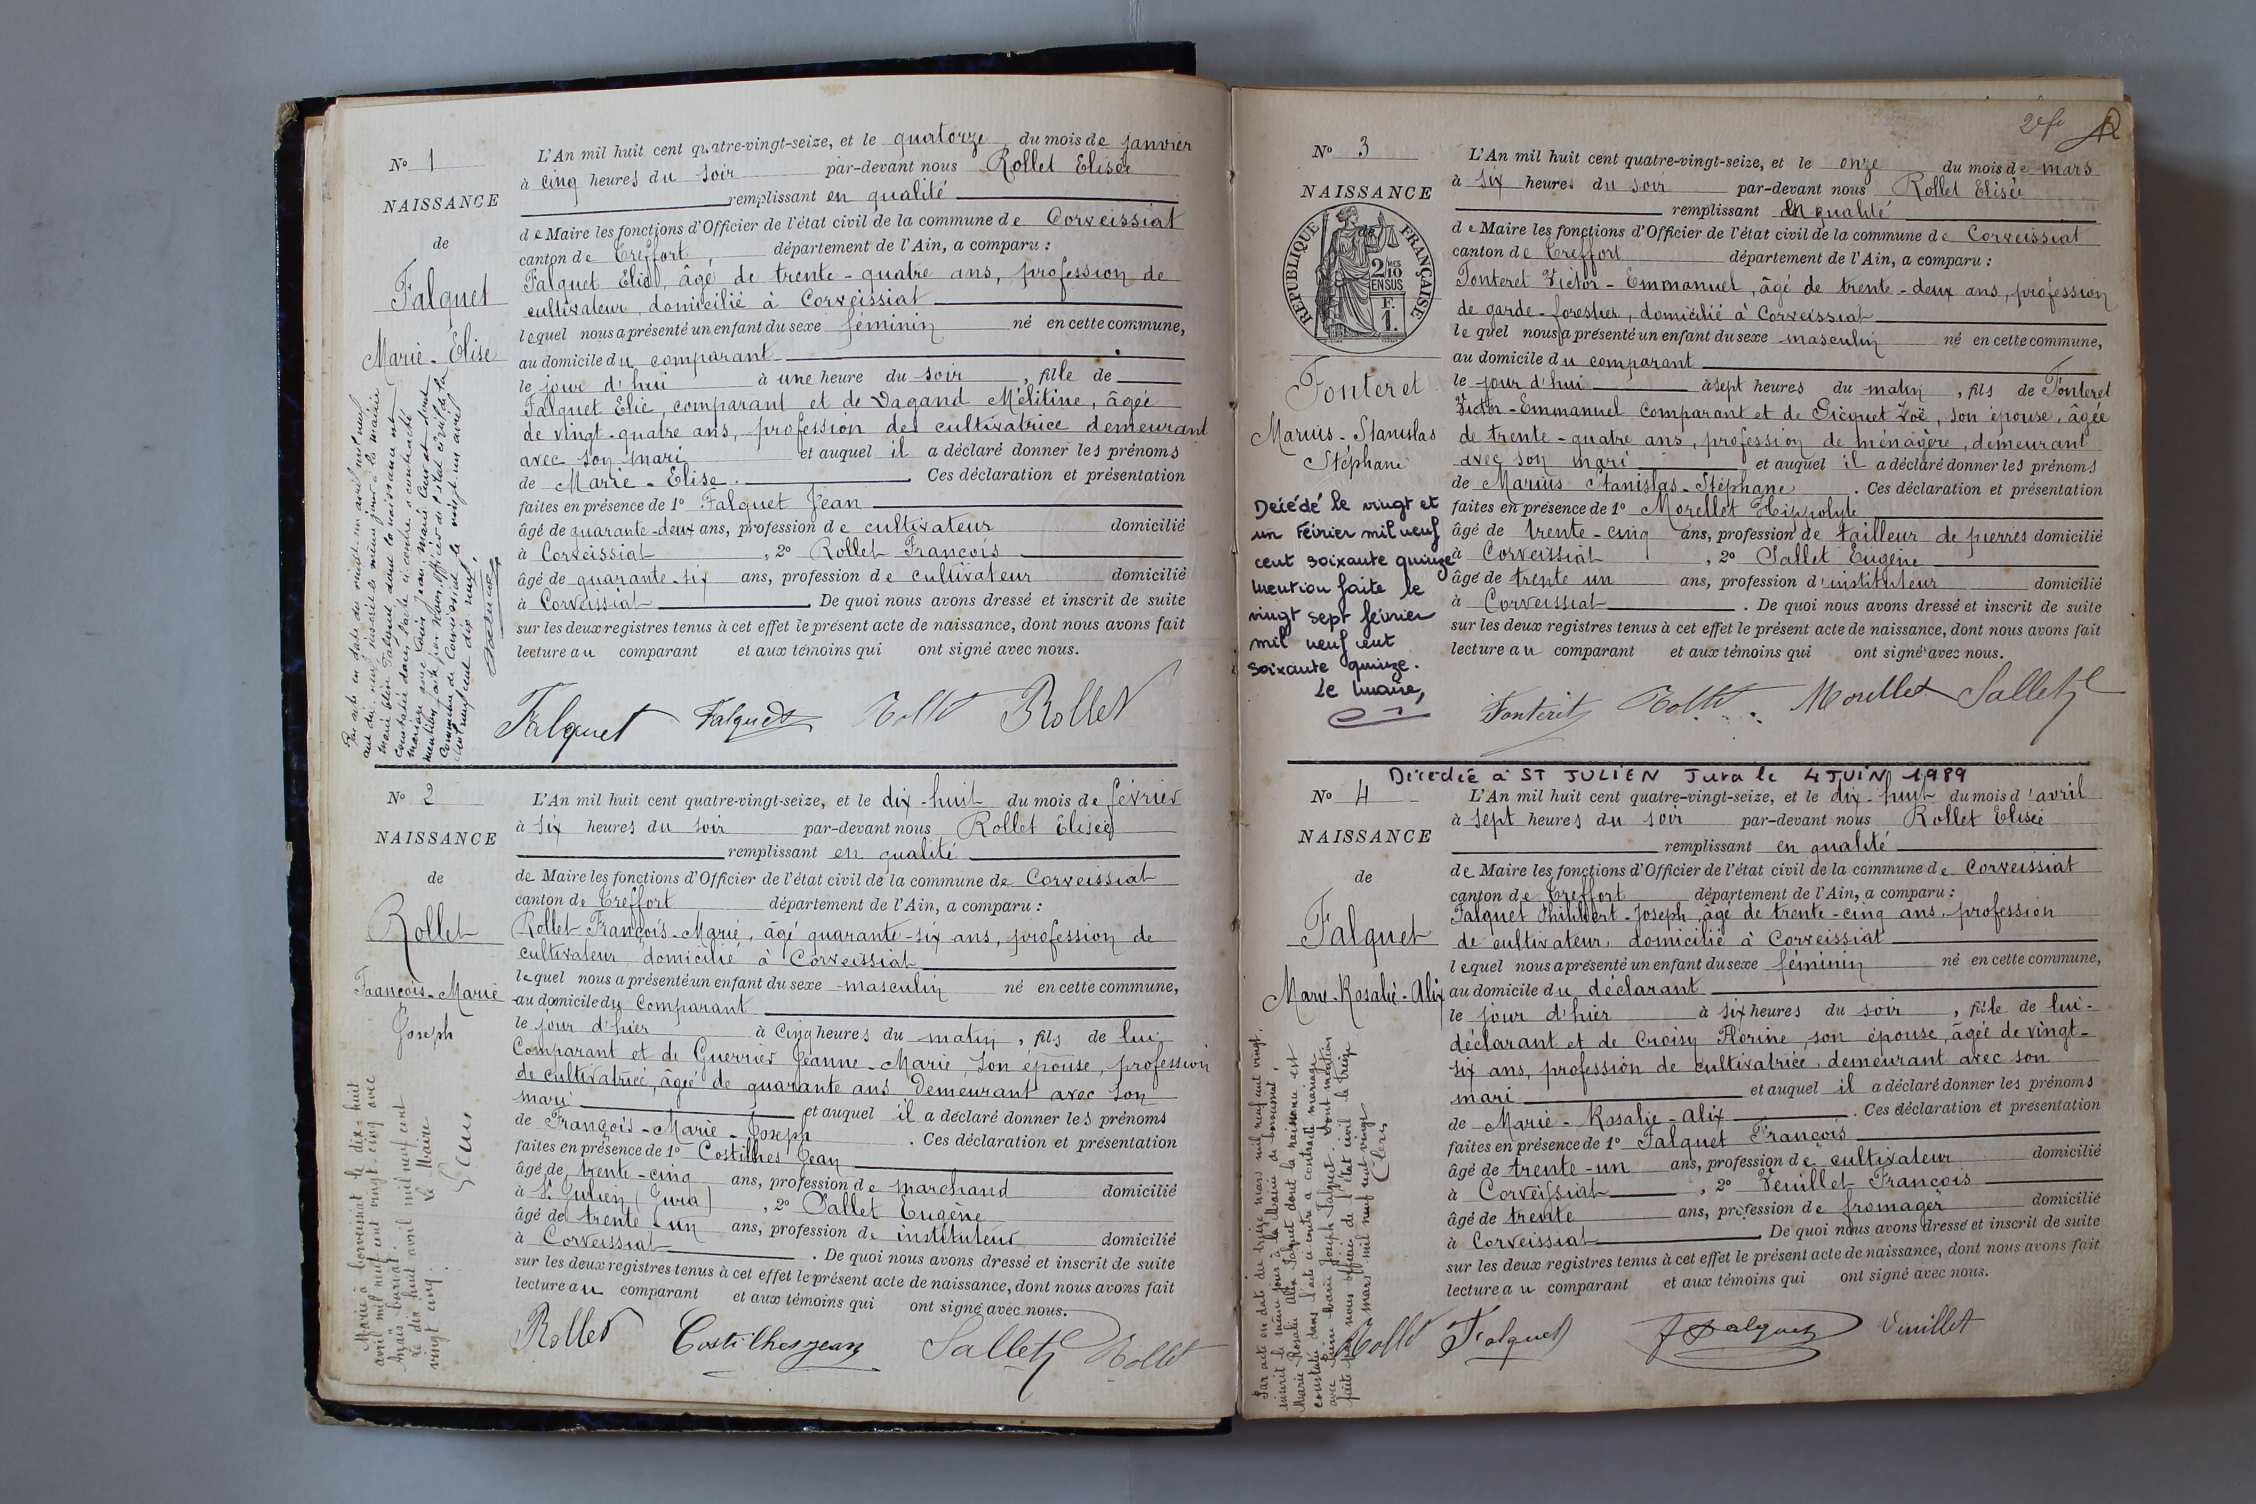 N° 1
NAISSANCE
de
Falquet
Marie-Elise
L'An mil huit cent quatre-vingt-seize, et le quatorze du mois de janvier
à cinq heures du soir par-devant nous Rollet Elisée
remplissant en qualité
de Maire les fonctions d'Officier de l'état civil de la commune de Corveissiat
canton de Treffort département de l'Ain, a comparu :
Falquet Elie, âgé de trente-quatre ans, profession de
cultivateur, domicilié à Corveissiat
lequel nous a présenté un enfant du sexe féminin né en cette commune,
au domicile du comparant
le jour d'hui à une heure du soir, fille de
Falquet Elie, comparant et de Dagand Mélitine, âgée
de vingt-quatre ans, profession de cultivatrice demeurant
avec son mari et auquel il a déclaré donner les prénoms
de Marie-Elise. Ces déclaration et présentation
faites en présence de 1° Falquet Jean
âgé de quarante-deux ans, profession de cultivateur domicilié
à Corveissiat, 2° Rollet François
âgé de quarante-six ans, profession de cultivateur domicilié
à Corveissiat. De quoi nous avons dressé et inscrit de suite
sur les deux registres tenus à cet effet le présent acte de naissance, dont nous avons fait
lecture au comparant et aux témoins qui ont signé avec nous.
Falquet Falquet Rollet Rollet
N° 2
NAISSANCE
de
Rollet
François-Marie
Joseph
Marié à Corveissiat le dix-huit
avril mil neuf cent vingt-cinq avec
le dix huit avril mil neuf cent
vingt cinq. Le Maire
L'An mil huit cent quatre-vingt-seize, et le dix-huit du mois de février
à six heures du soir par-devant nous Rollet Elisée
remplissant en qualité
de Maire les fonctions d'Officier de l'état civil de la commune de Corveissiat
canton de Treffort département de l'Ain, a comparu :
Rollet François-Marie, âgé quarante-six ans, profession de
cultivateur domicilié à Corveissiat
lequel nous a présenté un enfant du sexe masculin né en cette commune,
au domicile du Comparant
le jour d'hier à Cinq heures du matin, fils de lui
Comparant et de Guerrier Jeanne-Marie, son épouse, profession
de cultivatrice, âgée de quarante ans demeurant avec son
mari et auquel il a déclaré donner les prénoms
de François-Marie-Joseph. Ces déclaration et présentation
faites en présence de 1° Costilhes Jean
âgé de trente-cinq ans, profession de marchand domicilié
à St Julien (Jura), 2° Sallet Eugène
âgé de trente-un ans, profession de instituteur domicilié
à Corveissiat. De quoi nous avons dressé et inscrit de suite
sur les deux registres tenus à cet effet le présent acte de naissance, dont nous avons fait
lecture au comparant et aux témoins qui ont signé avec nous.
Rollet Costilhes Jean Sallet Rollet
N° 3
NAISSANCE
de
RÉPUBLIQUE FRANÇAISE
2/10MES
EN SUS
1F.
Fonteret
Marius-Stanislas
Stéphane
Décédé le vingt et
un Février mil neuf
cent soixante quinze
Mention faite le
vingt sept février
mil neuf cent
soixante quinze.
Le Maire,
L'An mil huit cent quatre-vingt-seize, et le onze du mois de mars
à six heures du soir par-devant nous Rollet Elisée
remplissant en qualité
de Maire les fonctions d'Officier de l'état civil de la commune de Corveissiat
canton de Treffort département de l'Ain, a comparu :
Fonteret Victor-Emmanuel, âgé de trente-deux ans, profession
de garde-forestier, domicilié à Corveissiat
lequel nous a présenté un enfant du sexe masculin né en cette commune,
au domicile du comparant
le jour d'hui à sept heures du matin, fils de Fonteret
Victor-Emmanuel comparant et de Gicquet Zoé, son épouse, âgée
de trente-quatre ans, profession de ménagère, demeurant
avec son mari et auquel il a déclaré donner les prénoms
de Marius Stanislas-Stéphane. Ces déclaration et présentation
faites en présence de 1° Morellet Hippolyte
âgé de trente-cinq ans, profession de tailleur de pierres domicilié
à Corveissiat, 2° Sallet Eugène
âgé de trente un ans, profession d'instituteur domicilié
à Corveissiat. De quoi nous avons dressé et inscrit de suite
sur les deux registres tenus à cet effet le présent acte de naissance, dont nous avons fait
lecture au comparant et aux témoins qui ont signé avec nous.
Fonteret Rollet Morellet Sallet
Décédée à ST JULIEN Jura le 4 JUIN 1989
N° 4
NAISSANCE
de
Falquet
Marie-Rosalie-Alix
L'An mil huit cent quatre-vingt-seize, et le dix-huit du mois d'avril
à sept heures du soir par-devant nous Rollet Elisée
remplissant en qualité
de Maire les fonctions d'Officier de l'état civil de la commune de Corveissiat
canton de Treffort département de l'Ain, a comparu :
Falquet Philibert-Joseph, âgé de trente-cinq ans, profession
de cultivateur, domicilié à Corveissiat
lequel nous a présenté un enfant du sexe féminin né en cette commune,
au domicile du déclarant
le jour d'hier à six heures du soir, fille de lui-
déclarant et de Croisy Florine, son épouse, âgée de vingt-
six ans, profession de cultivatrice, demeurant avec son
mari et auquel il a déclaré donner les prénoms
de Marie-Rosalie-Alix. Ces déclaration et présentation
faites en présence de 1° Falquet François
âgé de trente-un ans, profession de cultivateur domicilié
à Corveissiat, 2° Veuillet François
âgé de trente ans, profession de fromager domicilié
à Corveissiat. De quoi nous avons dressé et inscrit de suite
sur les deux registres tenus à cet effet le présent acte de naissance, dont nous avons fait
lecture au comparant et aux témoins qui ont signé avec nous.
Rollet Falquet Falquet Veuillet